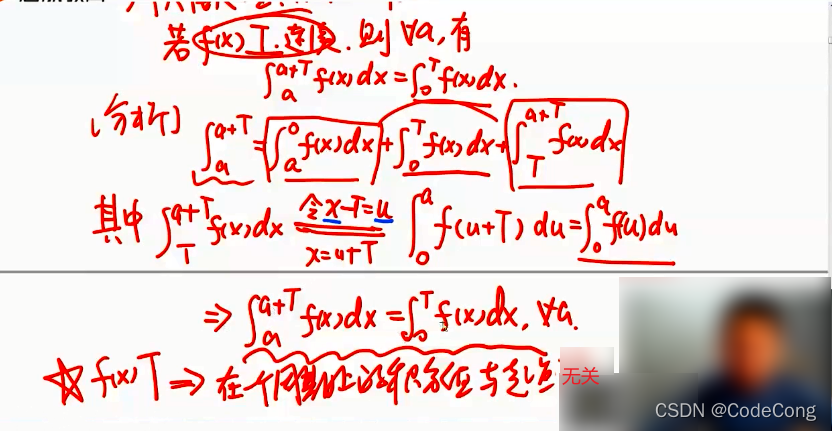 若 f(x) T.连续.则 ∀a,有
∫_a^{a+T} f(x)dx = ∫_0^T f(x)dx.
[分析] ∫_a^{a+T} = ∫_a^0 f(x)dx + ∫_0^T f(x)dx + ∫_T^{a+T} f(x)dx
其中 ∫_T^{a+T} f(x)dx 令x-T=u x=u+T ∫_0^a f(u+T) du = ∫_0^a f(u)du
⇒ ∫_a^{a+T} f(x)dx = ∫_0^T f(x)dx, ∀a.
☆ f(x) T ⇒ 在一个周期上的积分值与起点 无关
CSDN @CodeCong